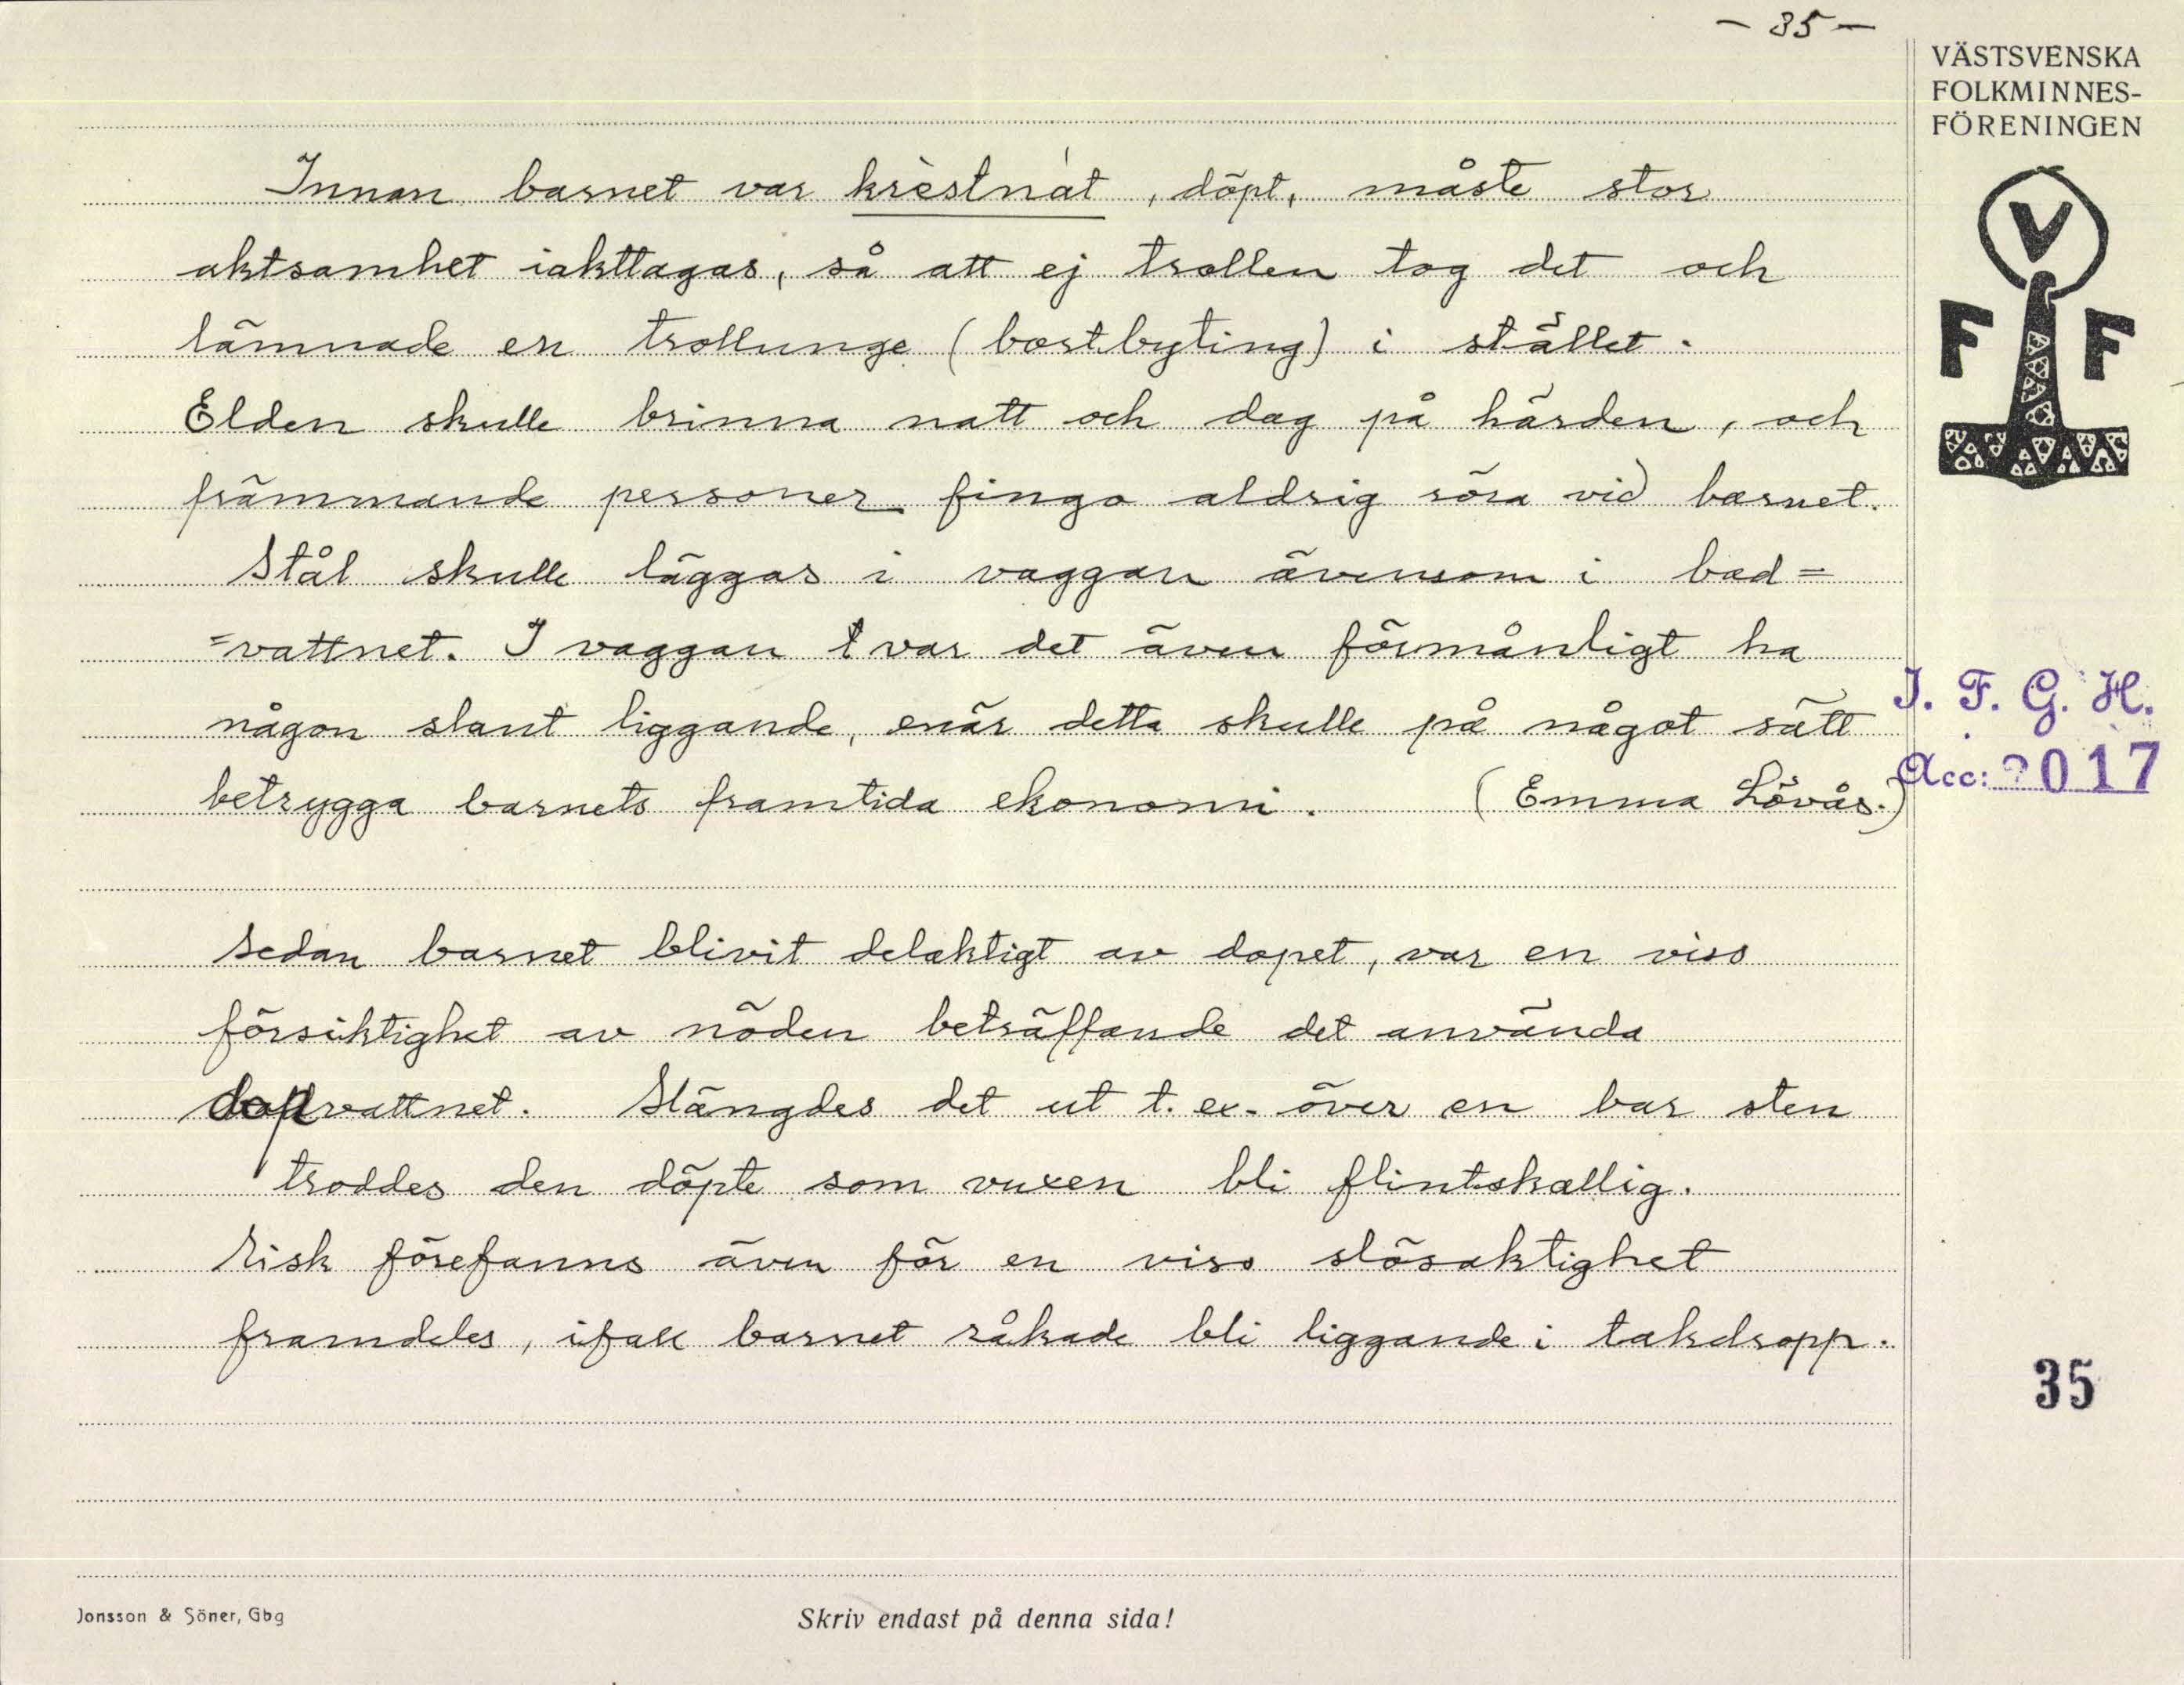 - 35 -
VÄSTSVENSKA
FOLKMINNES-
FÖRENINGEN
V
F F
Innan barnet var krèstnát, döpt, måste stor
aktsamhet iakttagas, så att ej trollen tog det och
lämnade en trollunge (bortbyting) i stället.
Elden skulle brinna natt och dag på härden, och
främmande personer fingo aldrig röra vid barnet.
Stål skulle läggas i vaggan ävensom i bad=
=vattnet. I vaggan var det även förmånligt ha
någon slant liggande, enär detta skulle på något sätt
betrygga barnets framtida ekonomi. (Emma Lövås.)
I. F. G. H.
Acc: 2017
Sedan barnet blivit delaktigt av dopet, var en viss
försiktighet av nöden beträffande det använda
dopvattnet. Slängdes det ut t. ex. över en bar sten
troddes den döpte som vuxen bli flintskallig.
Risk förefanns även för en viss slösaktighet
framdeles, ifall barnet råkade bli liggande i takdropp.
35
Jonsson & Söner, Gbg
Skriv endast på denna sida!